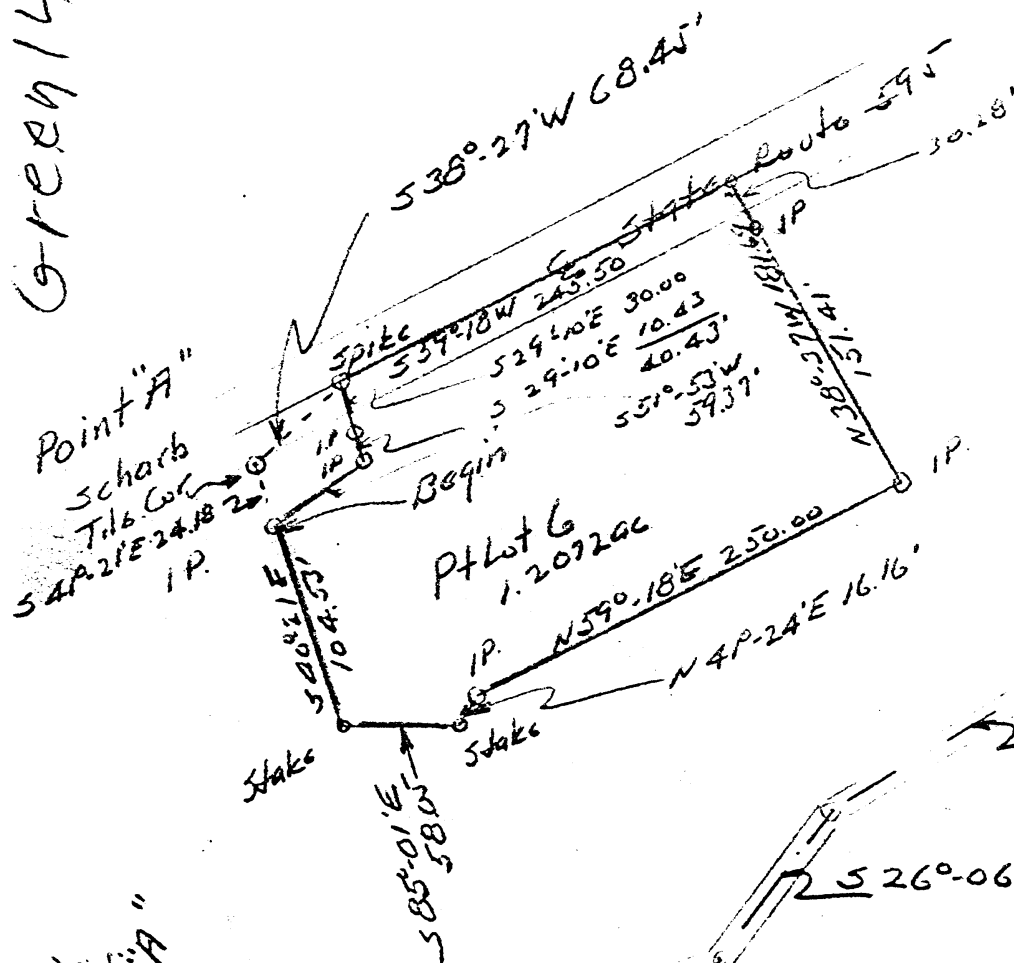 Green 14
S 38°-27'W 68.45'
State Route 595
30.28'
I.P.
Spike
S59°-18W 245.50
S 29°-10'E 30.00
S 29-10'E 10.43
40.43'
S51°-53'W
59.37'
N38°-37W 181.69
151.41'
Point "A"
Scharb
Tile Cor
S 41°-21'E 24.18
I.P.
I.P.
I.P.
Begin
I.P.
Pt Lot 6
1.2072ac
N59°-18'E 250.00
I.P.
N 41°-24'E 16.16'
104.53'
Stake
Stake
S85°-01'E
S 26°-06
"A"